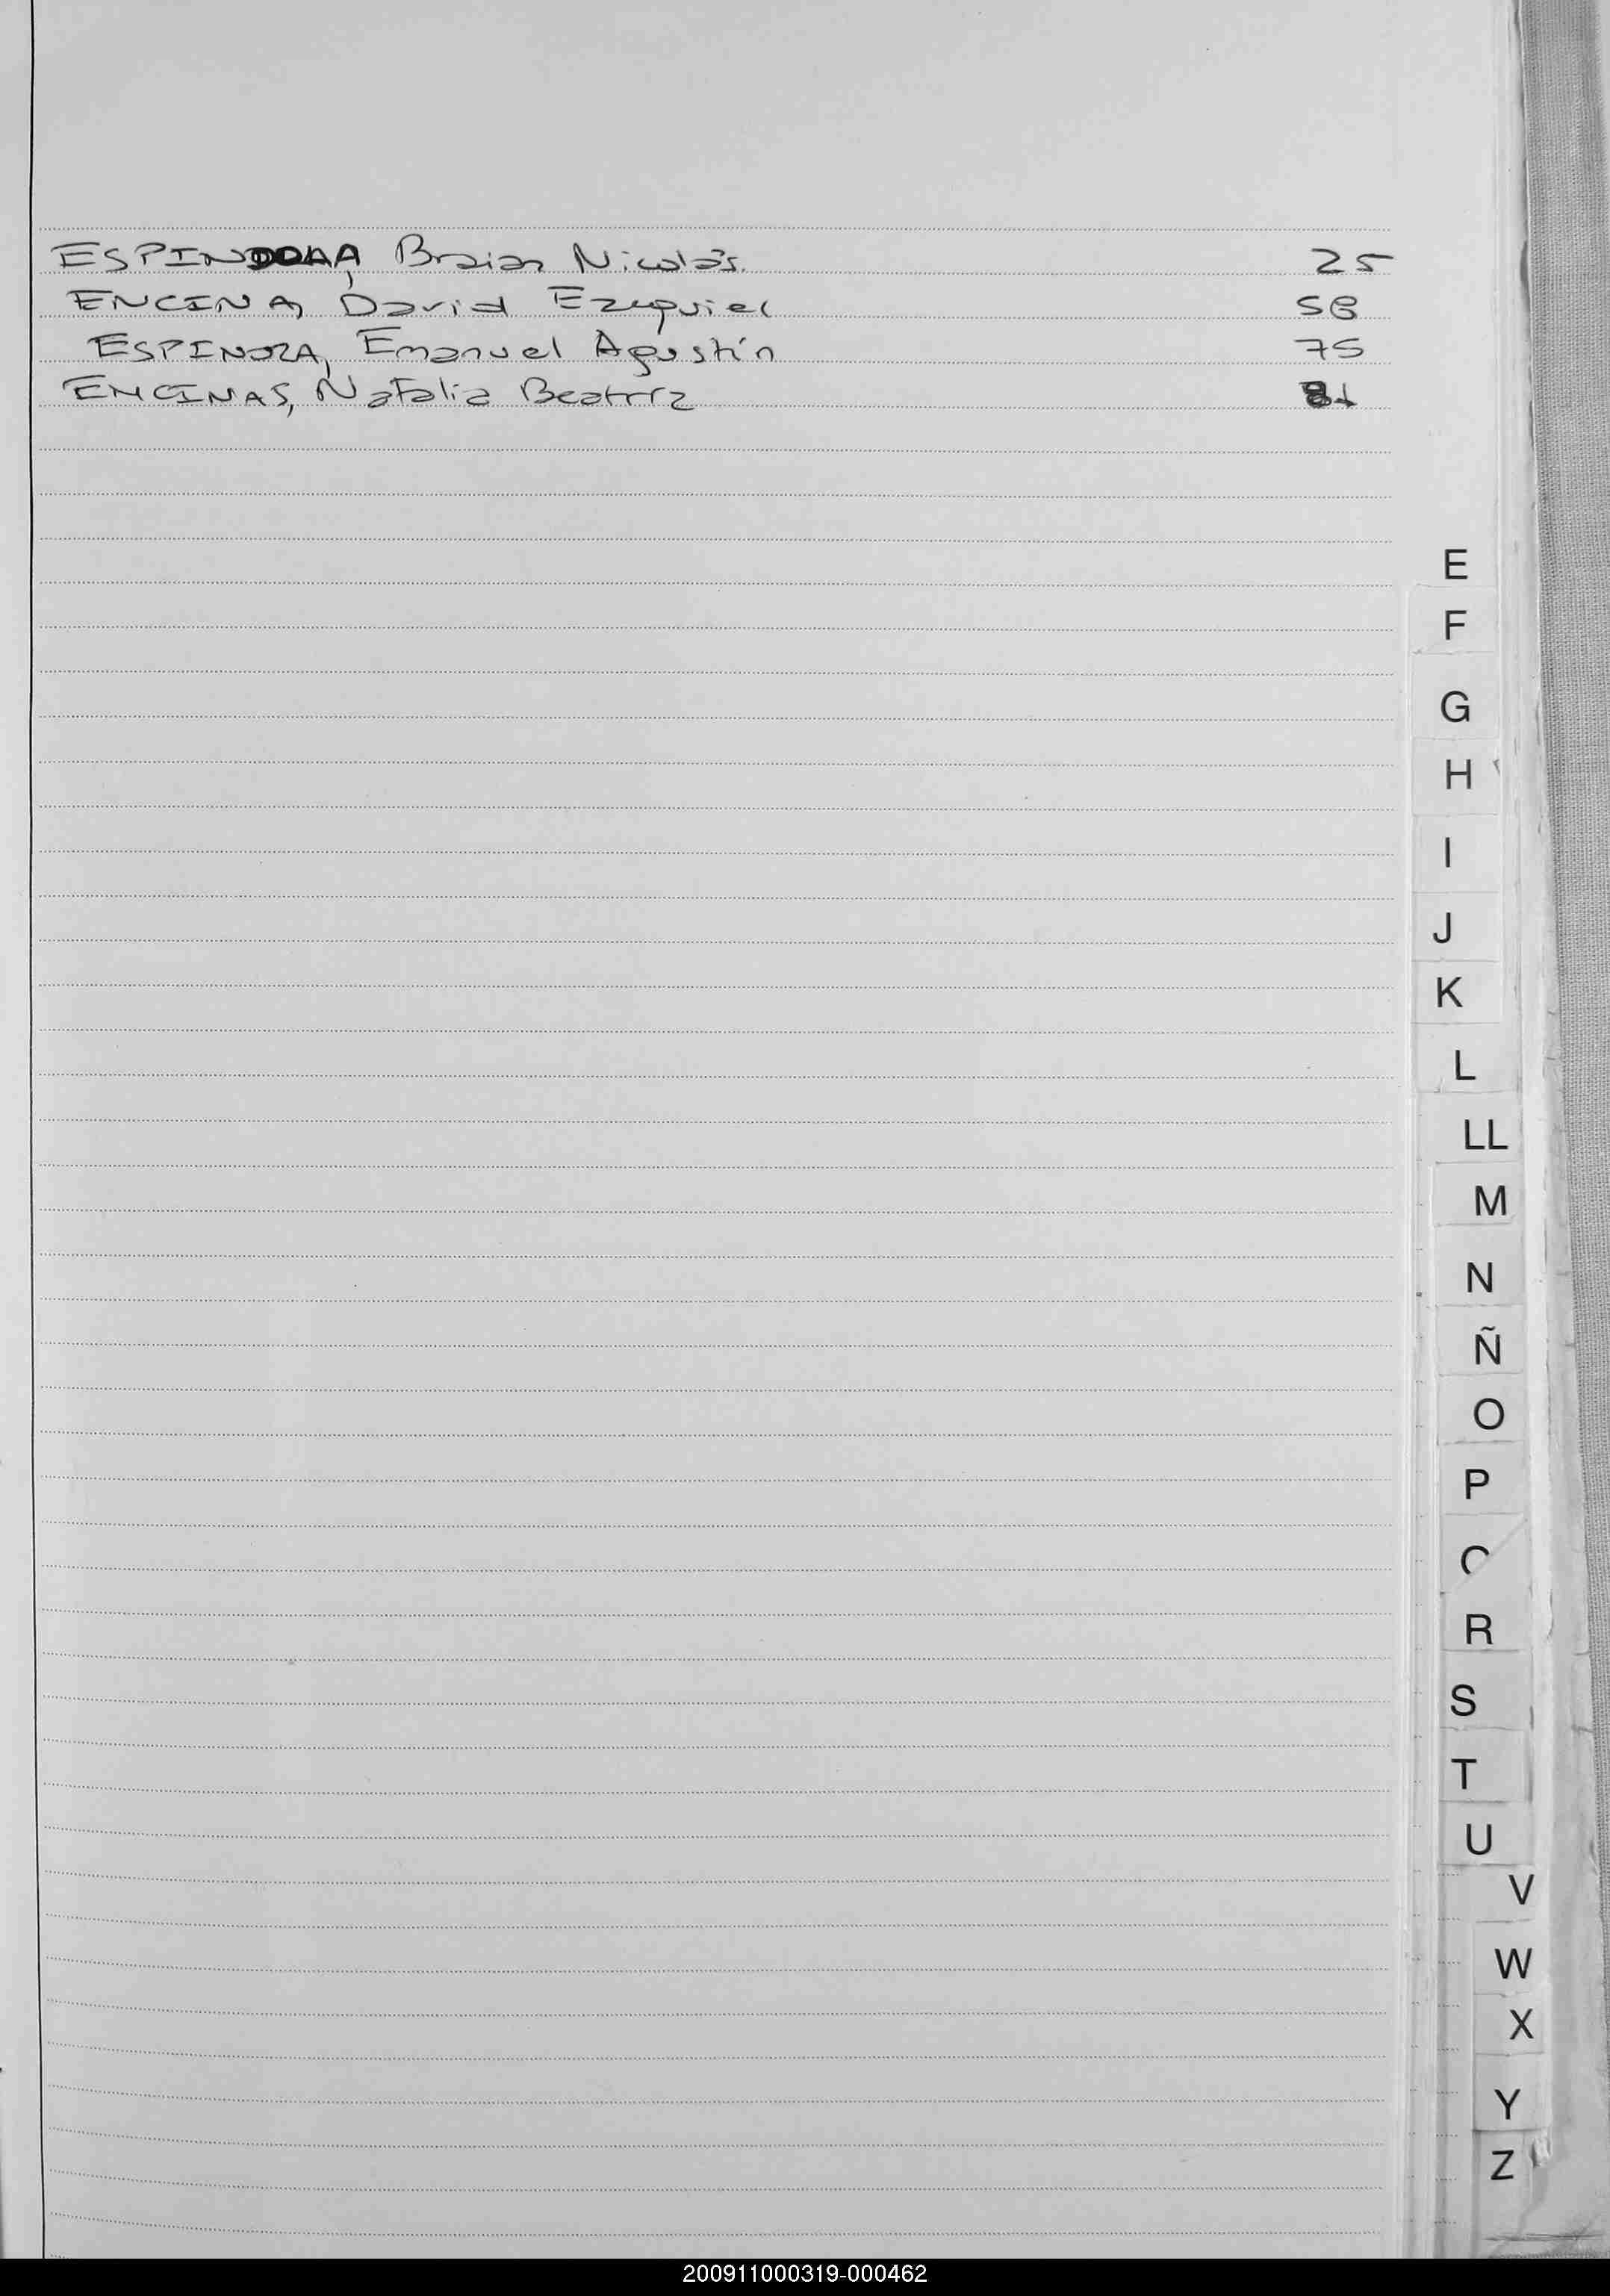 ESPINDOLA, Braian Nicolás. 25
ENCINA, David Ezequiel 58
ESPINOZA, Emanuel Agustín 75
ENCINAS, Natalia Beatriz 81
E
F
G
H
I
J
K
L
LL
M
N
Ñ
O
P
R
S
T
U
V
W
X
Y
Z
200911000319-000462